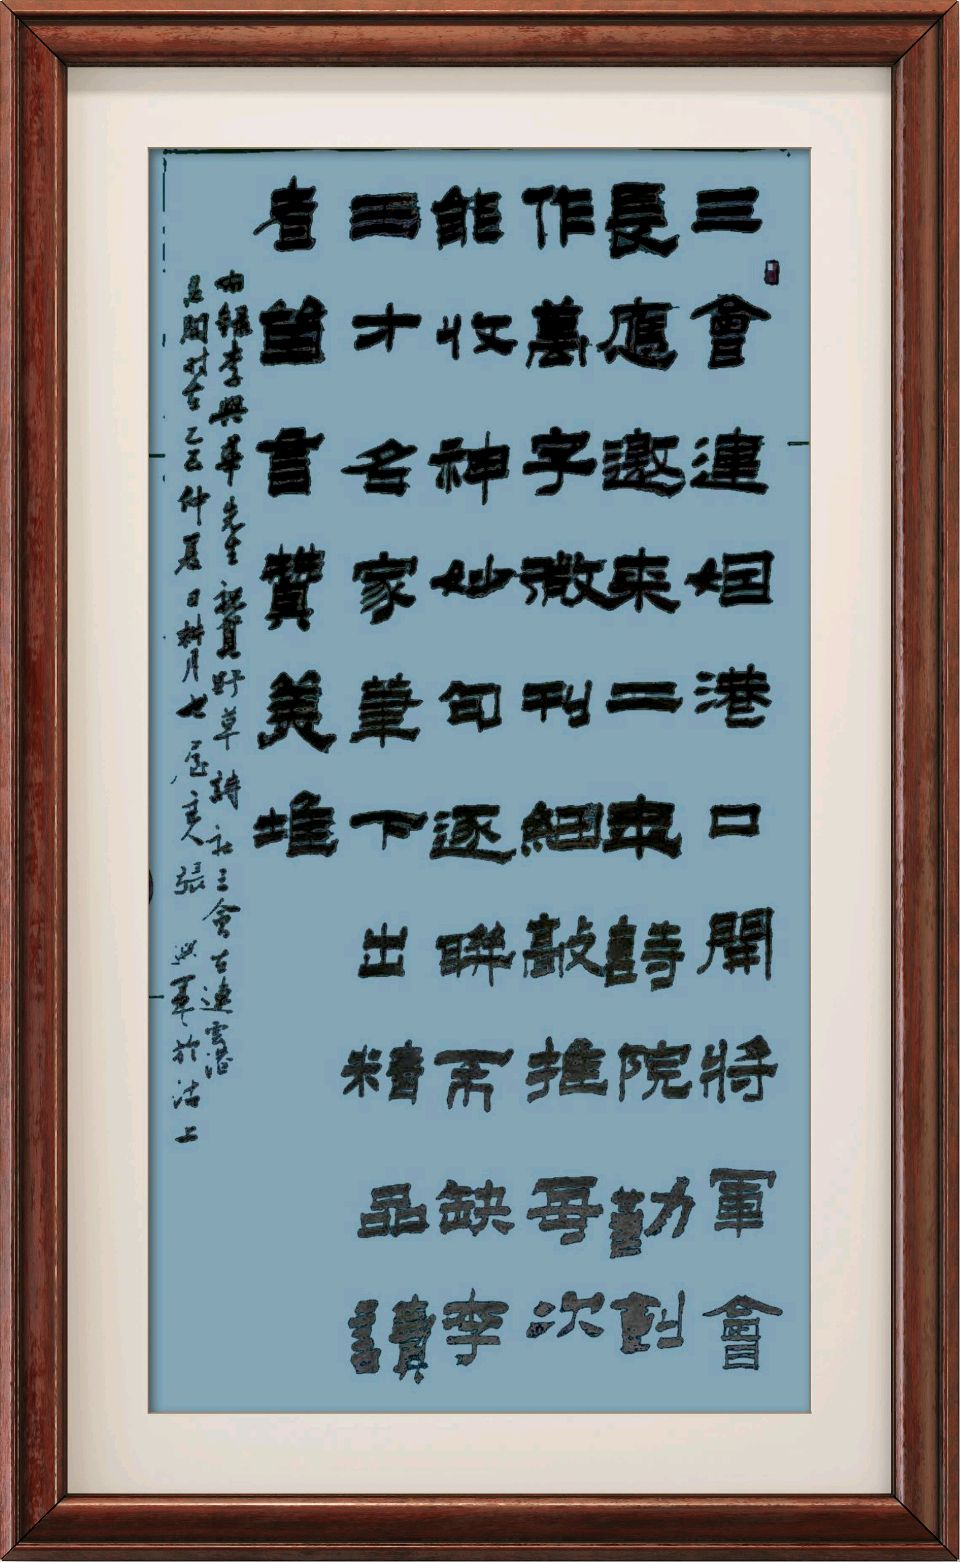 三會連姻港口開將軍會
長應邀來二東詩院勤創
作萬字微刊細敲推每次
能收神妙句逐聯不缺李
才名家筆下出精品讀
者留言贊美堆
右錄李興華先生祝賀野草詩社三會在連雲港
召開乙巳仲夏日耕月七居主人張興軍於沽上